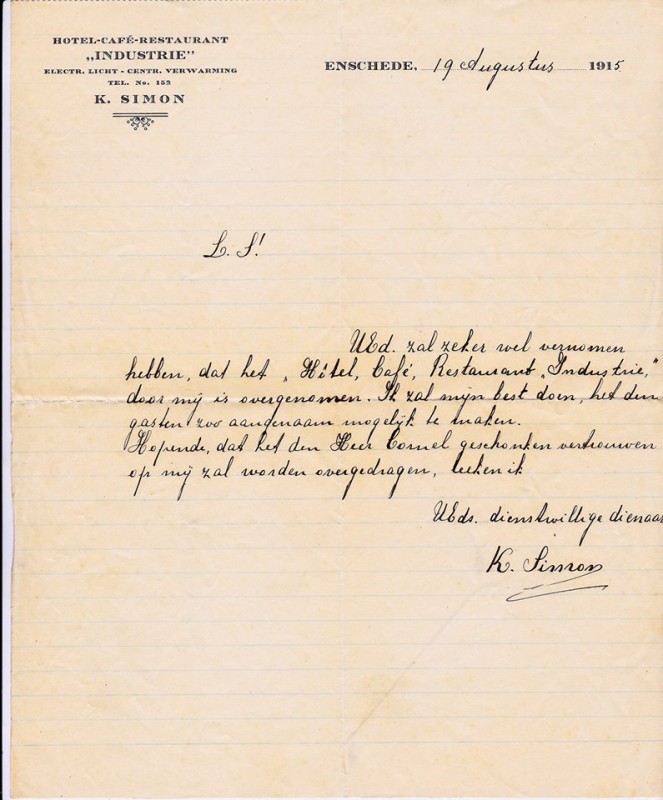 HOTEL-CAFÉ-RESTAURANT
„INDUSTRIE"
ELECTR. LICHT - CENTR. VERWARMING
TEL. No. 152
K. SIMON
ENSCHEDE, 19 Augustus 1915
L. S!
UEd. zal zeker wel vernomen
hebben, dat het „Hôtel, Café, Restaurant „Industrie,"
door mij is overgenomen. Ik zal mijn best doen, het den
gasten zoo aangenaam mogelijk te maken.
Hopende, dat het den Heer Cornel geschonken vertrouwen
op mij zal worden overgedragen, teeken ik
UEds. dienstwillige dienaar
K. Simon